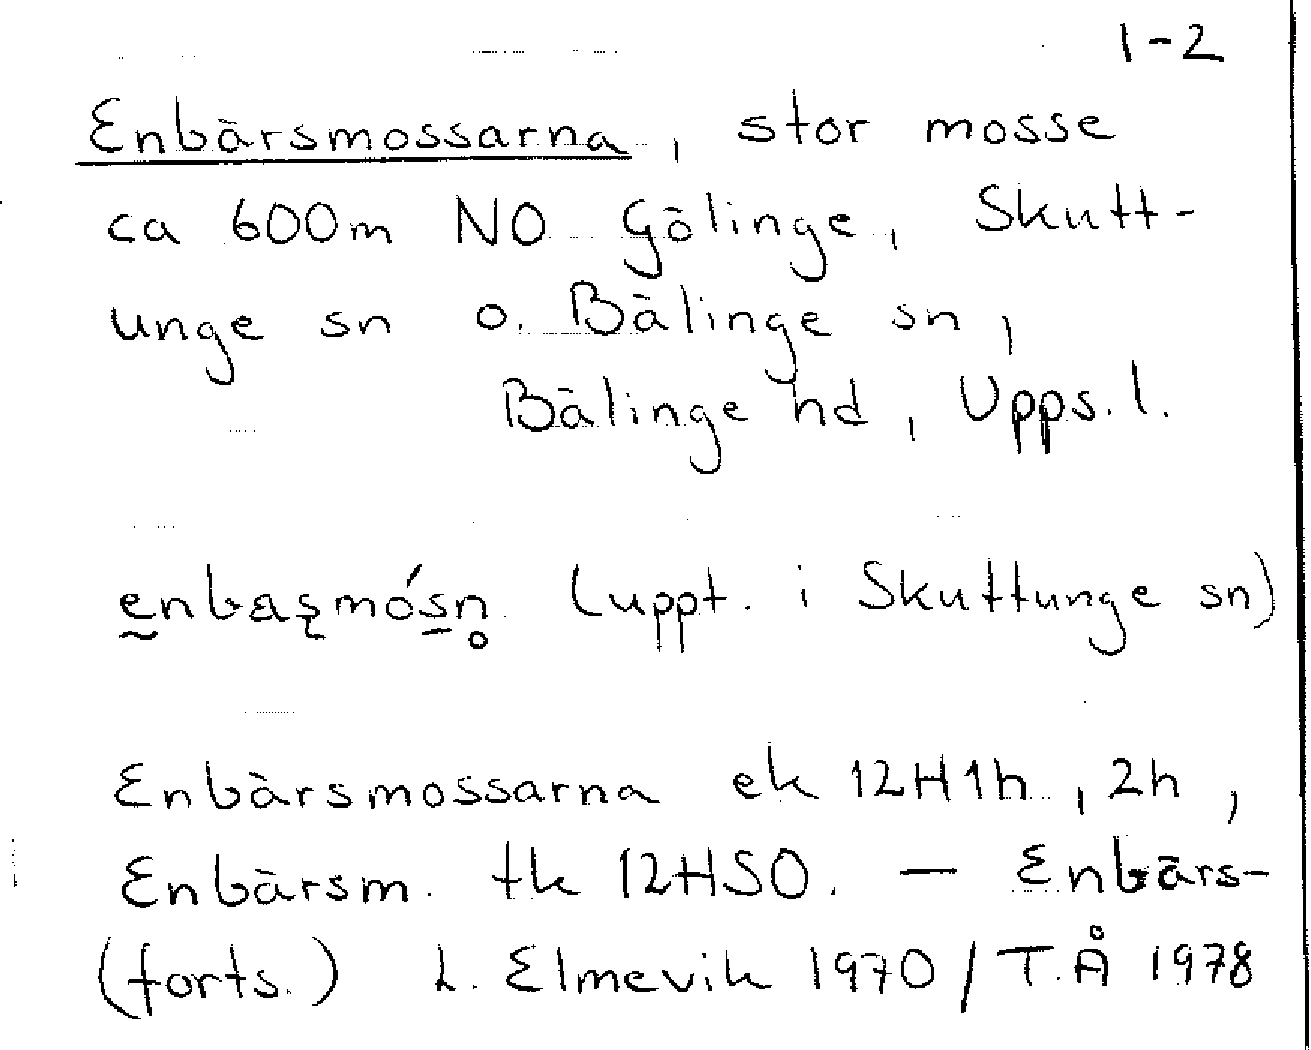 1-2
Enbärsmossarna, stor mosse
ca 600m NO Gölinge, Skutt-
unge sn o. Bälinge sn,
Bälinge hd, Upps. l.
(uppt. i Skuttunge sn)
Enbärsmossarna ek 12H1h, 2h,
Enbärsm. tk 12HSO. — Enbärs-
(forts.) L. Elmevik 1970 / T.Å 1978